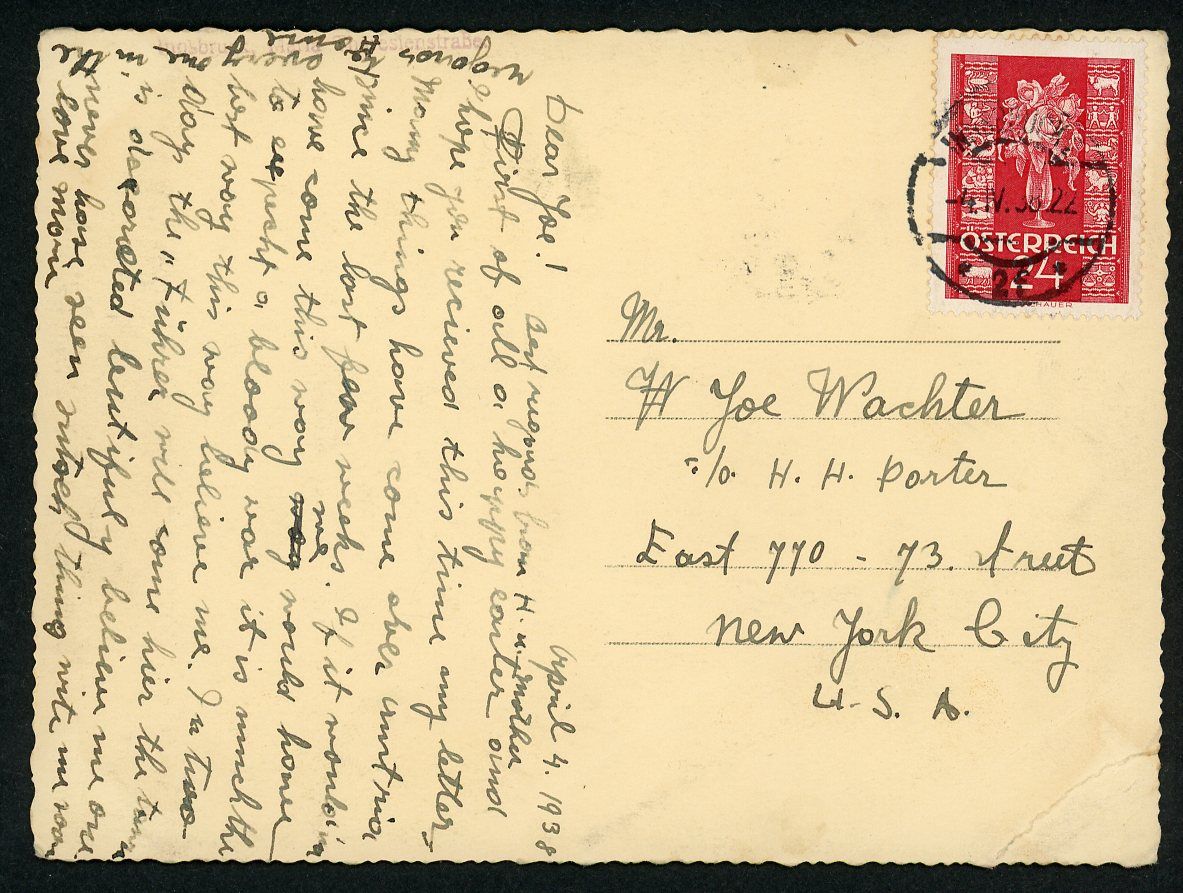 April 4. 1938
Dear Joe!
First of all a happy easter and
I hope you recieved this time my letter.
Many things have come over austria
time the last few weeks. If it wouldn
have come this way we would have
to expecht a bloody war it is much the
best way this way believe me. In two
days the "Führer will come hier the town
is decorated beutifuly believe me one
never have seen sutsch thing
in the
love more
every one
home
Best regards from H. u. Mother
Mr.
W Joe Wachter
c/o. H. H. Porter
East 770 - 73. Street
New York City
U. S. A.
ÖSTERREICH
24
-4.IV.38 22
* 2f *